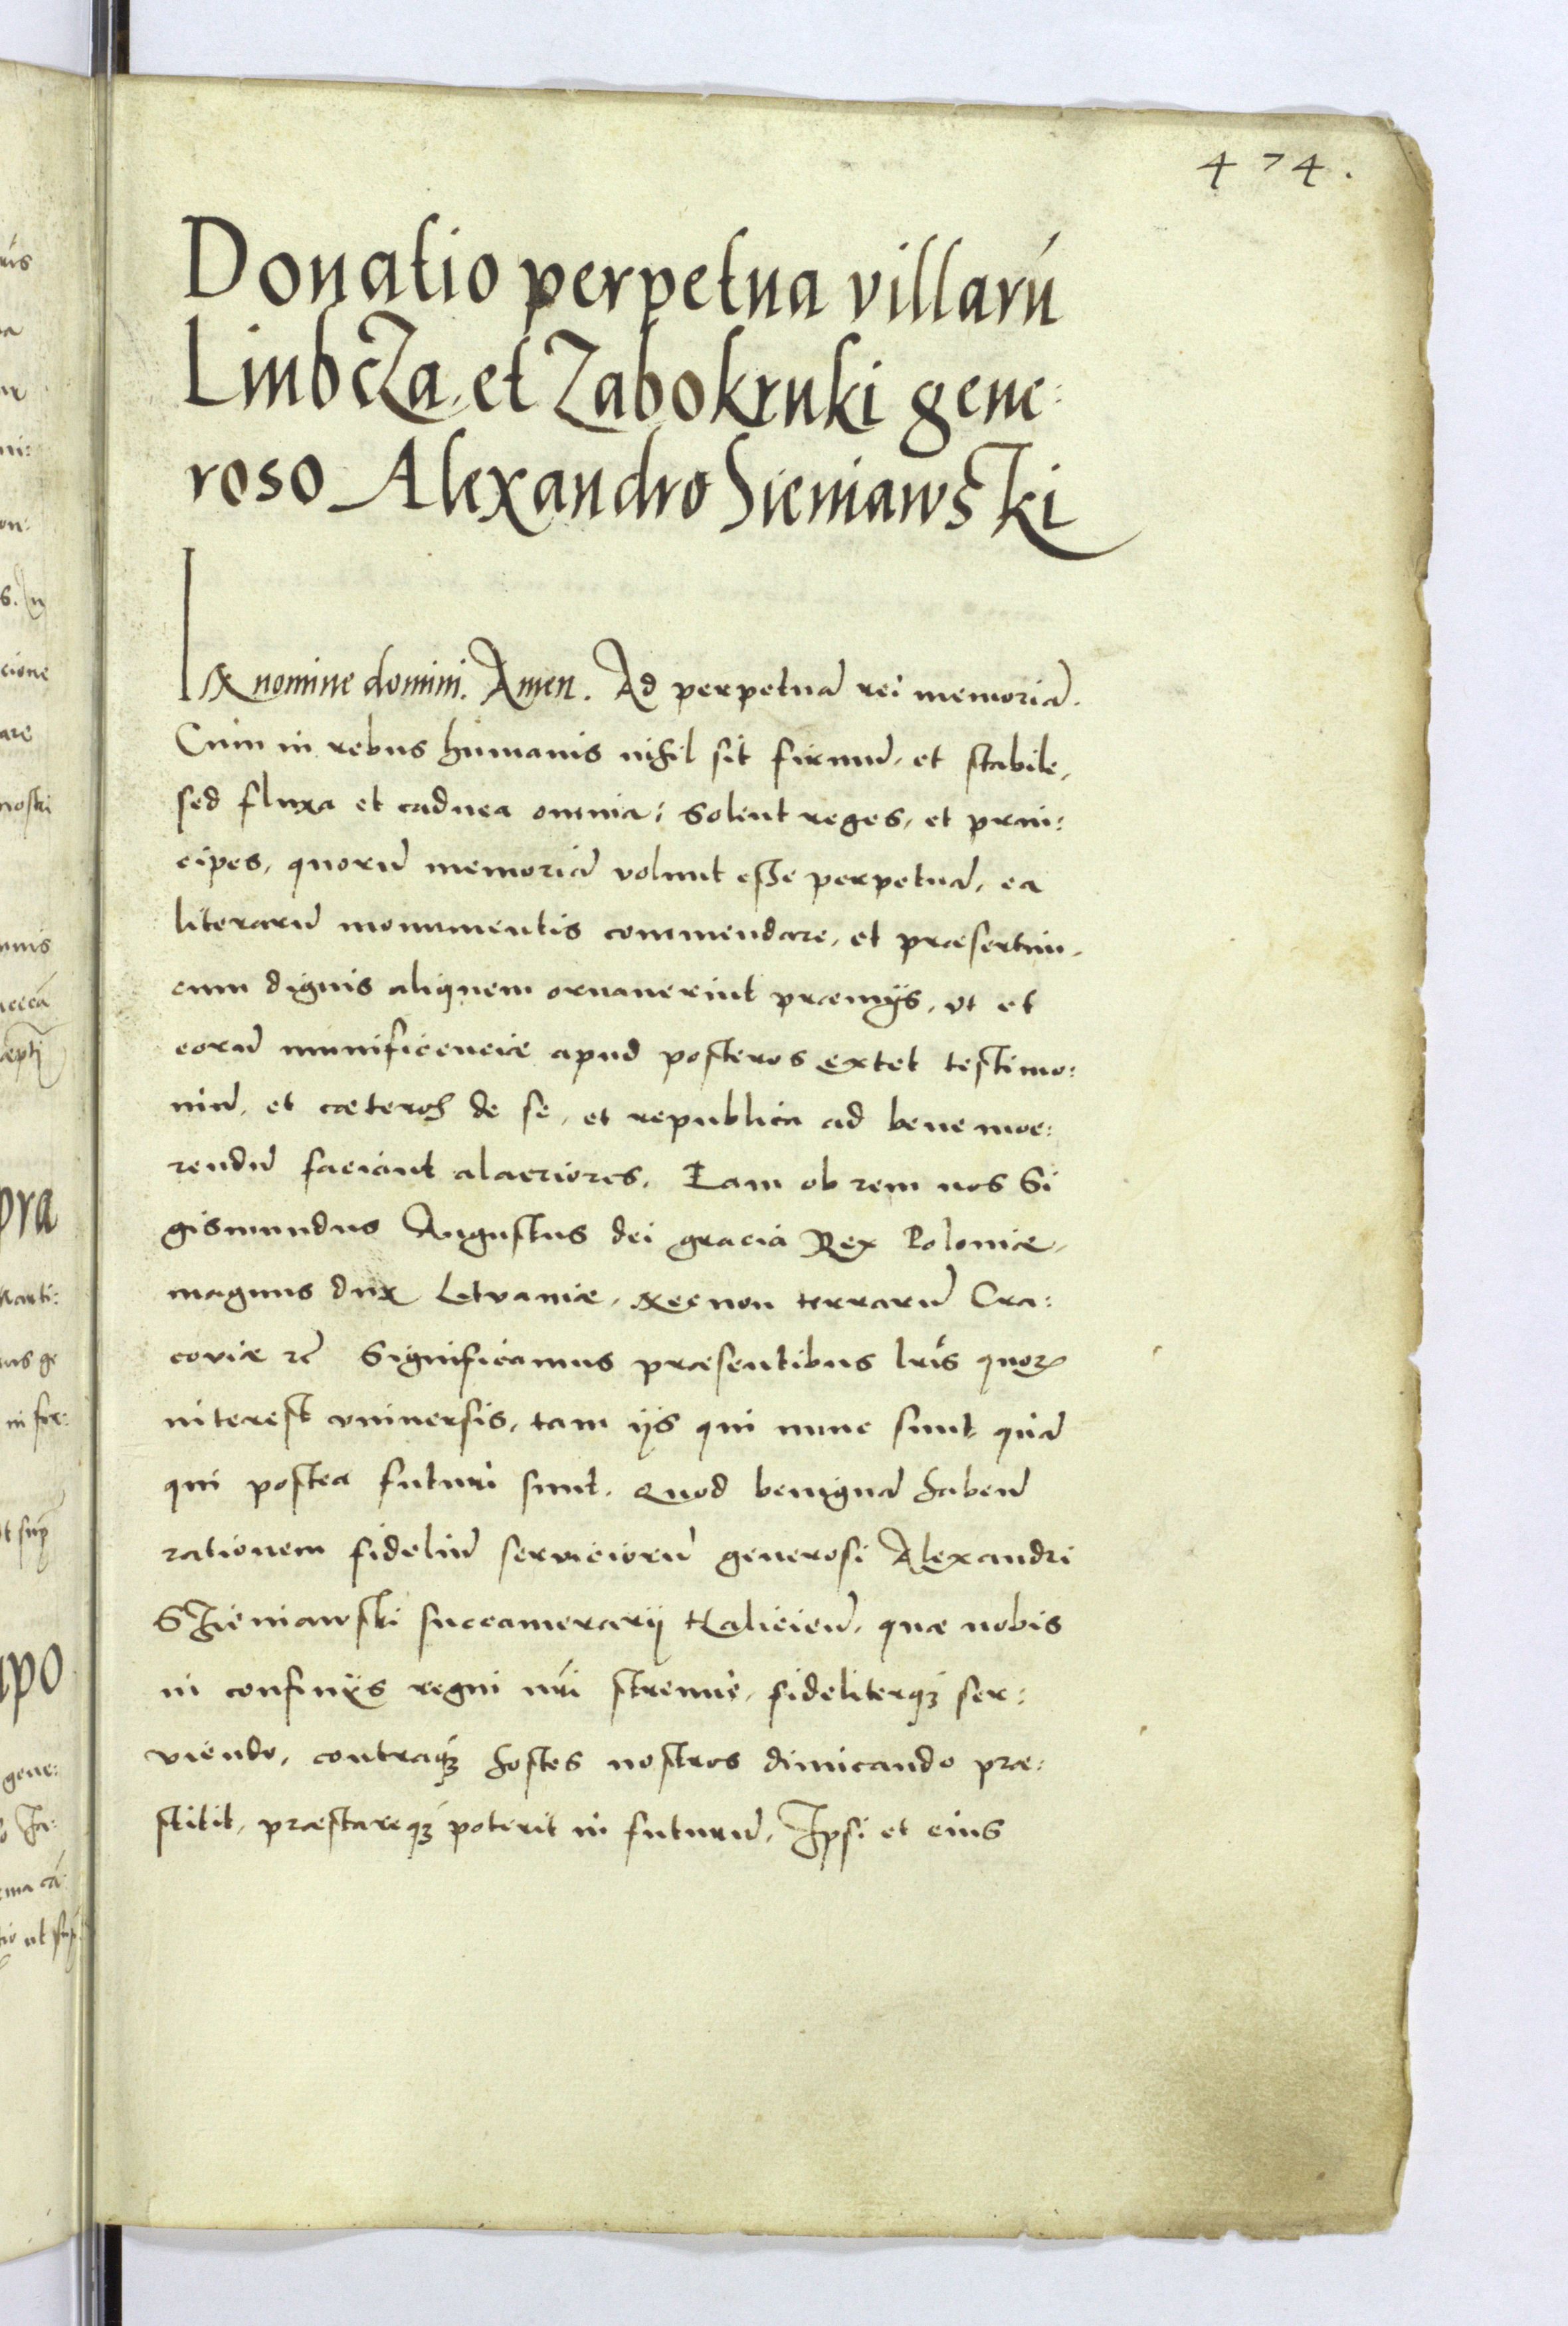 474.
Donatio perpetua villarú
Liubcza, et Zabokruki gene:
roso Alexandro Sieniawski
In nomine domini. Amen. Ad perpetuā rei memoriā.
Cum in rebus humanis nihil sit firmū, et stabile,
sed fluxa et caduca omnia: solent reges, et prin:
cipes, quorū memoriā volunt esse perpetuā, ea
literarū monumentis commendare, et præsertim,
cum dignis aliquem ornauerint præmijs, vt et
eorū munificenciæ apud posteros extet testimo:
niū, et cæteros de se, et republica ad bene moe:
rendū faciant alacriores. Eam ob rem nos Si
gismundus Augustus dei gracia Rex Poloniæ,
magnus dux Letvaniæ, necnon terrarū Cra:
coviæ zc̄ Significamus præsentibus lr̄is quoꝝ
interest vniuersis, tam ijs qui nunc sunt, quā
qui postea futuri sunt. Quod benignā habeñ
rationem fideliū serviciorū generosi Alexandri
Szieniawski succamerarij Halicieñ, quæ nobis
in confinijs regni nr̄i strenuè, fideliterqꝫ ser:
viendo, contraqꝫ hostes nostros dimicando præ:
stitit, præstareqꝫ poterit in futurū, Ipsi et eius